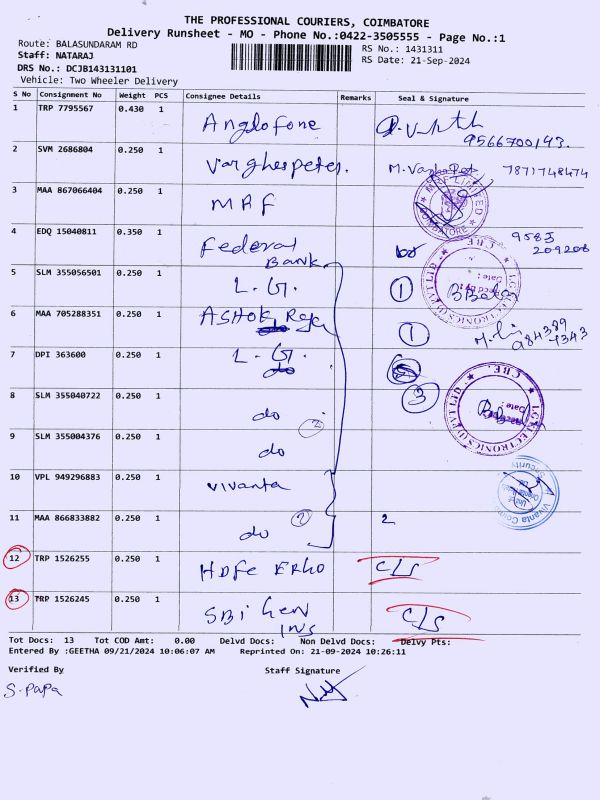 THE PROFESSIONAL COURIERS, COIMBATORE
Delivery Runsheet - MO - Phone No.:0422-3505555 - Page No.:1
Route: BALASUNDARAM RD RS No.: 1431311
Staff: NATARAJ RS Date: 21-Sep-2024
DRS No.: DCJB143131101
Vehicle: Two Wheeler Delivery
S No Consignment No Weight PCS Consignee Details Remarks Seal & Signature
1 TRP 7795567 0.430 1 Anglofone
9566700193.
2 SVM 2686804 0.250 1 Varghespeter. 7871748474
3 MAA 867066404 0.250 1 MRF
MRF LIMITED COIMBATORE
4 EDQ 15040811 0.350 1 Federal Bank 9585 209208
5 SLM 355056501 0.250 1 L.G. 1
LG ELECTRONICS (I) PVT LTD CBE. Date :
6 MAA 705288351 0.250 1 ASHOK Raja 1 984389 4343
7 DPI 363600 0.250 1 L.G. do
8 SLM 355040722 0.250 1 do 2 3
LG ELECTRONICS (I) PVT LTD CBE. Date
9 SLM 355004376 0.250 1 do
10 VPL 949296883 0.250 1 vivanta
Vivanta Security
11 MAA 866833882 0.250 1 do 2 2
12 TRP 1526255 0.250 1 HDFC ERGO C/S
13 TRP 1526245 0.250 1 SBi Gen INS C/S
Tot Docs: 13 Tot COD Amt: 0.00 Delvd Docs: Non Delvd Docs: Delvy Pts:
Entered By :GEETHA 09/21/2024 10:06:07 AM Reprinted On: 21-09-2024 10:26:11
Verified By Staff Signature
S.PaPa